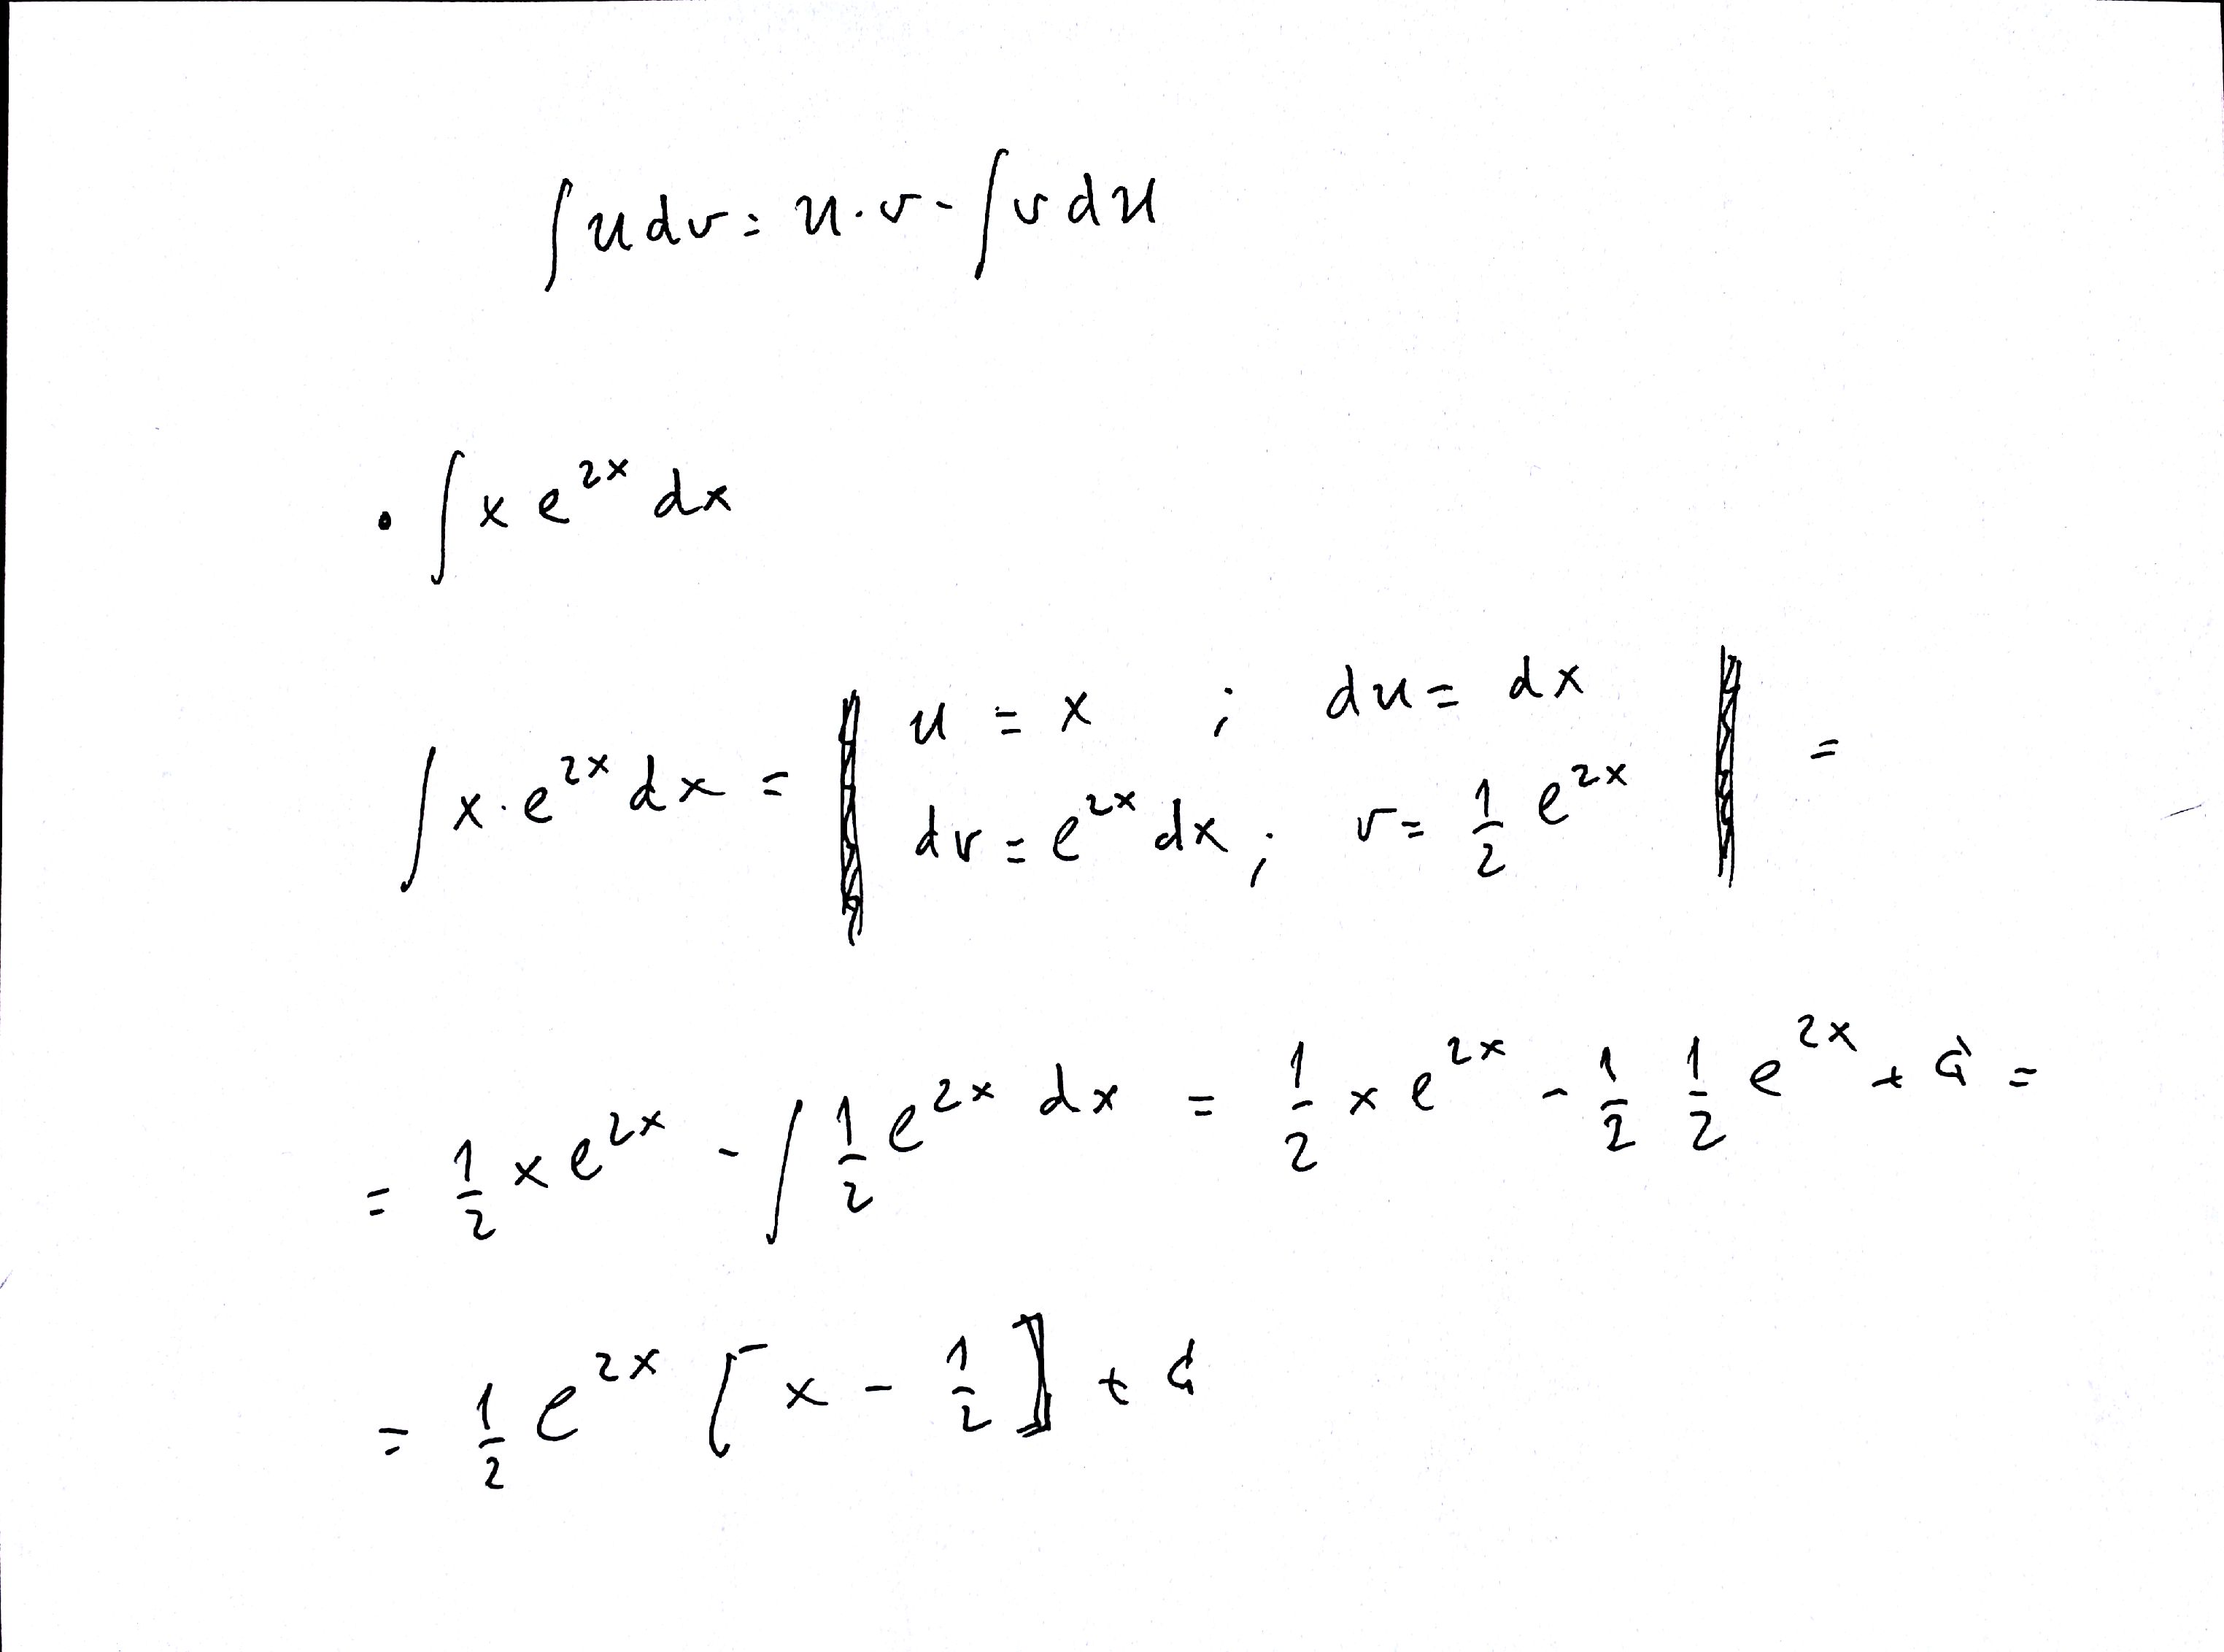 ∫ u dv = u · v - ∫ v du
• ∫ x e^{2x} dx
∫ x · e^{2x} dx = ‖ u = x ; du = dx ; dv = e^{2x} dx ; v = \frac{1}{2} e^{2x} ‖ =
= \frac{1}{2} x e^{2x} - ∫ \frac{1}{2} e^{2x} dx = \frac{1}{2} x e^{2x} - \frac{1}{2} \frac{1}{2} e^{2x} + C =
= \frac{1}{2} e^{2x} [ x - \frac{1}{2} ] + C